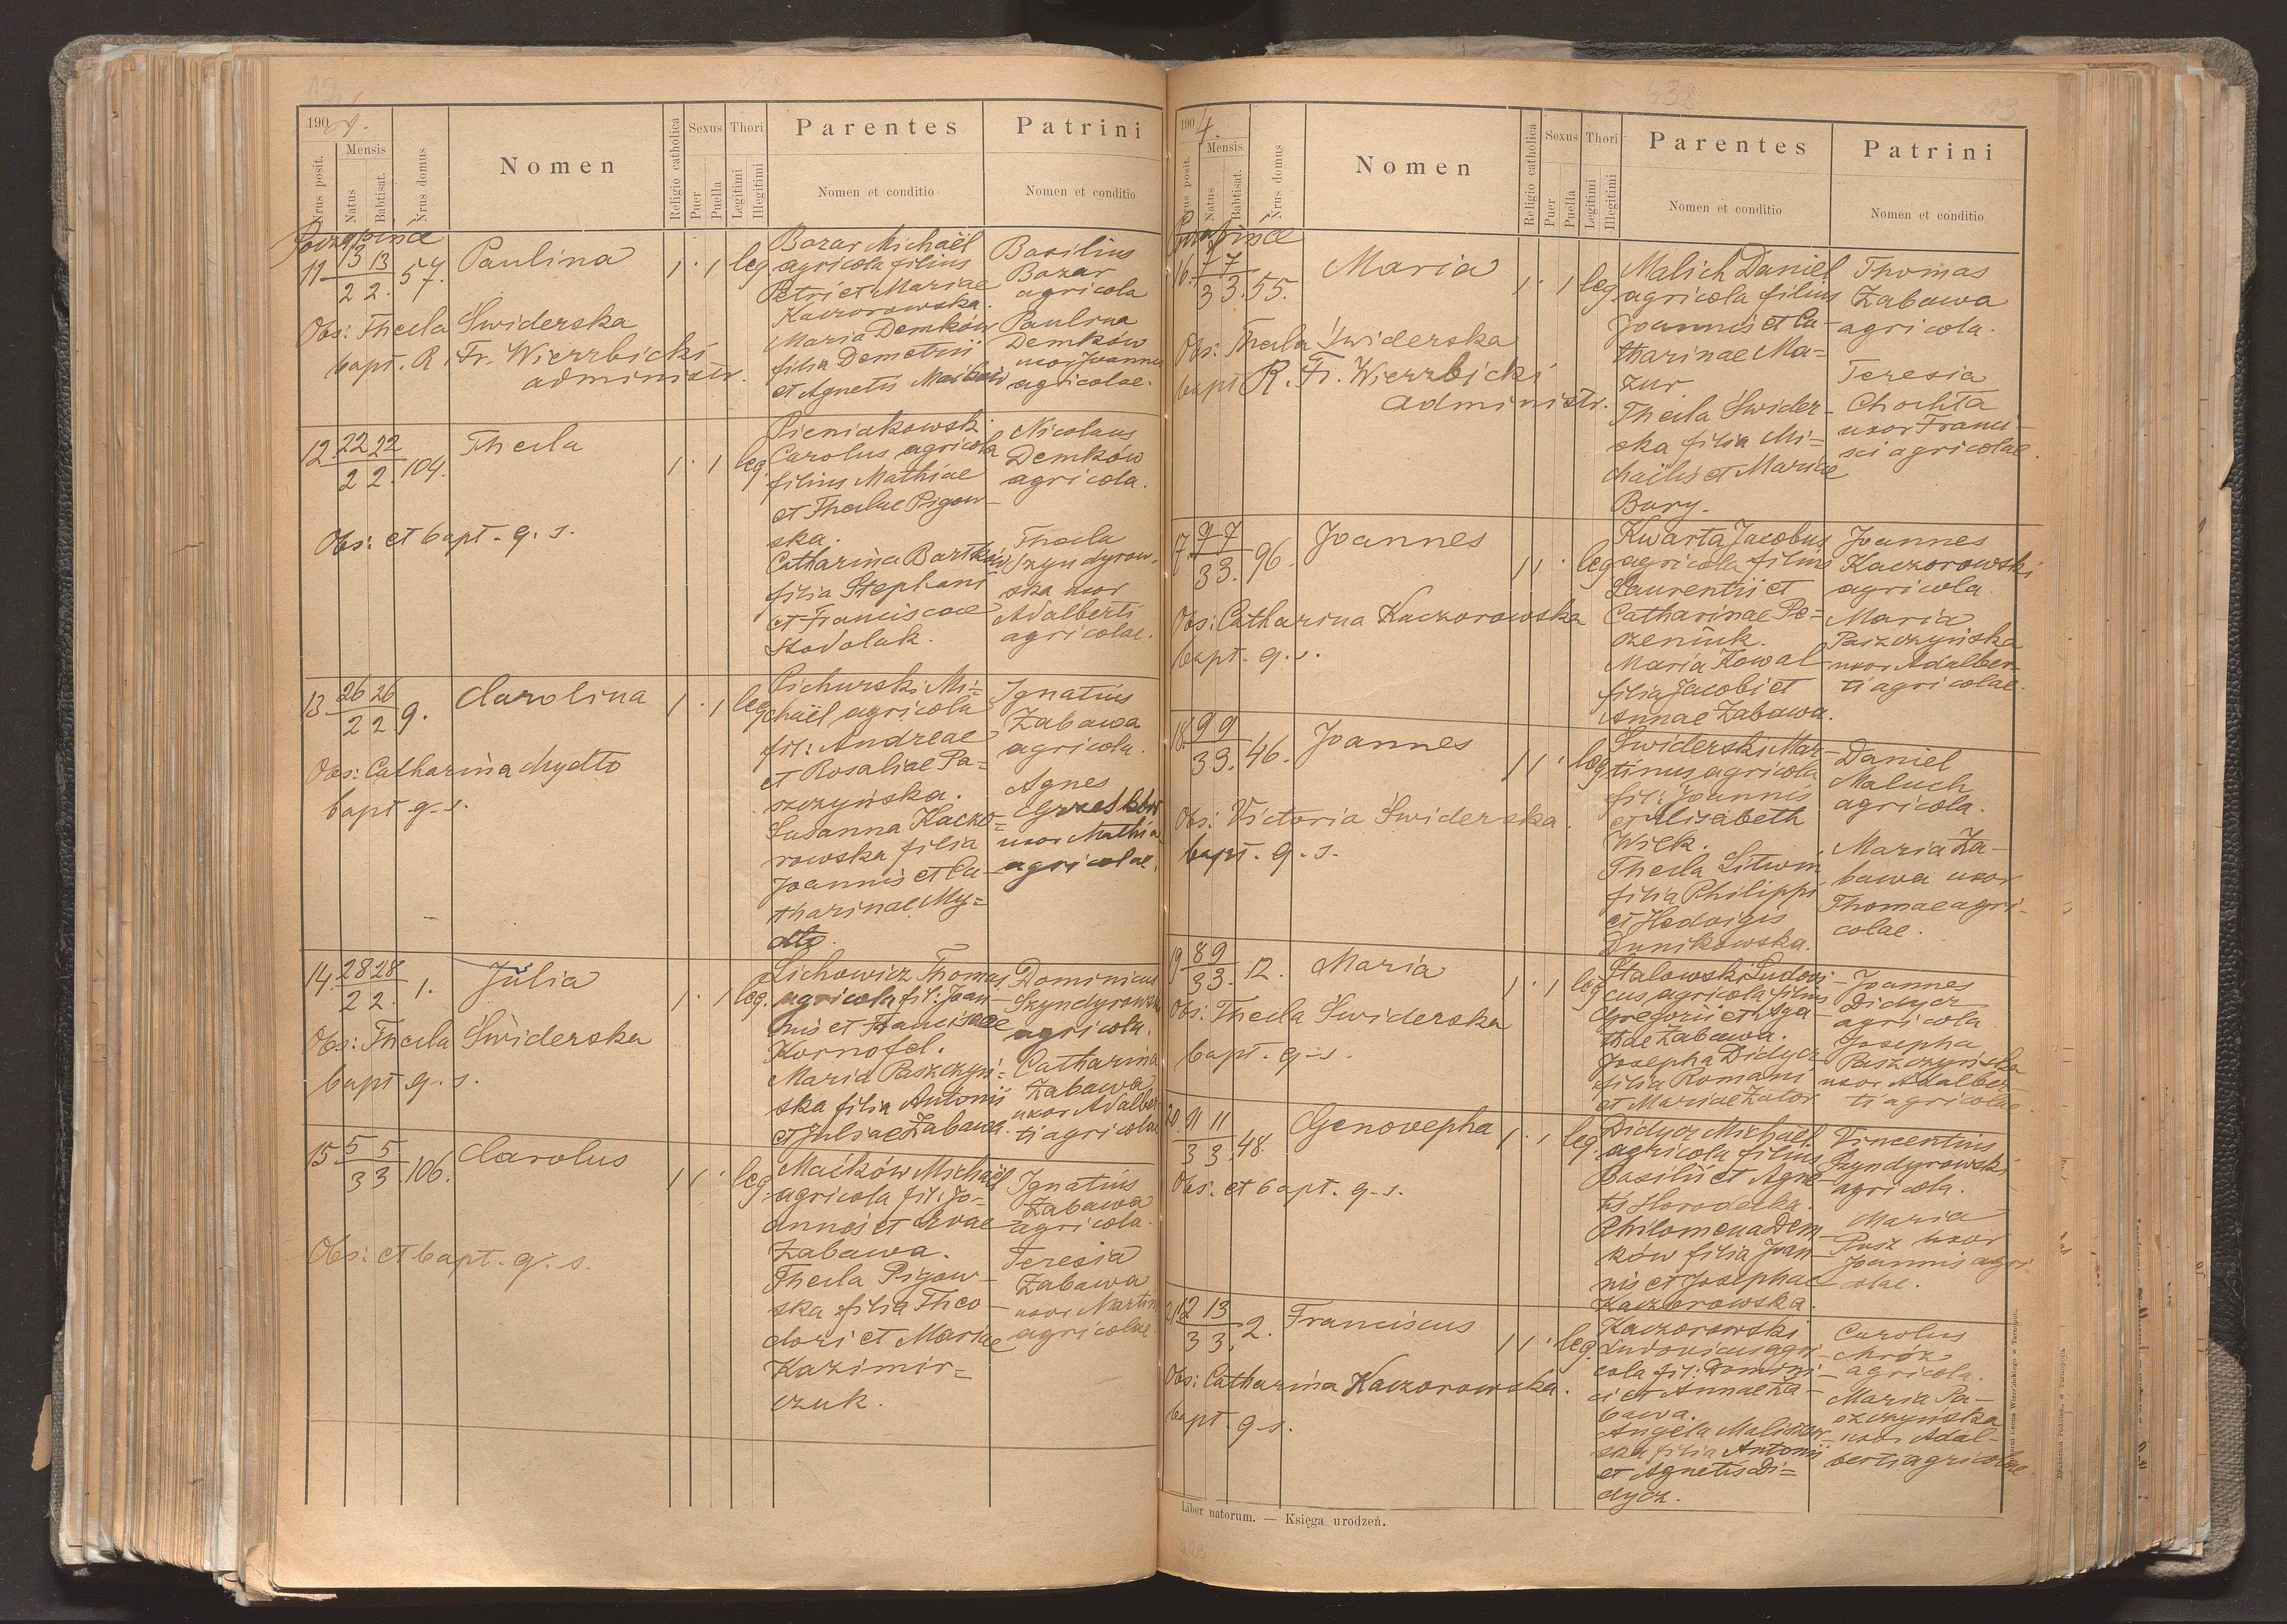 1904.
Nrus posit.
Mensis
Natus
Babtisat.
Nrus domus
Nomen
Religio catholica
Sexus
Puer
Puella
Thori
Legitimi
Illegitimi
Parentes
Nomen et conditio
Patrini
Nomen et conditio
11 13 13 57. Paulina 1 . 1 leg.
2 2.
Obs: Thecla Świderska
bapt. R. Fr. Wierzbicki
administr.
Bazar Michaël
agricola filius
Petri et Mariae
Kaczorowska.
Maria Demków
filia Demetrii
et Agnetis
Basilius
Bazar
agricola
Paulina
Demków
uxor Joannis
agricolae.
12 22 22 104. Thecla 1 . 1 leg.
2 2.
Obs: et bapt. q. s.
Pieniakowski
Carolus agricola
filius Mathiae
et Theclae Pigow-
ska.
Catharina Bartków
filia Stephani
et Franciscae
Stodolak.
Nicolaus
Demków
agricola.
Thecla
Szyndyrow-
ska uxor
Adalberti
agricolae.
13 26 26 9. Carolina 1 . 1 leg.
2 2
Obs: Catharina Mydło
bapt q. s.
Pichurski Mi=
chaël agricola
fil: Andreae
et Rosaliae Pa=
szczyńska.
Susanna Kaczo=
rowska filia
Joannis et Ca-
tharinae My=
dło.
Ignatius
Zabawa
agricola.
Agnes
Grześków
uxor Mathiae
agricolae.
14. 28 28 1. Julia 1 . 1 leg.
2 2.
Obs: Thecla Świderska
bapt q. s.
Lichowicz Thomas
agricola fil: Joan-
nis et Franciscae
Kornofel.
Maria Paszczyń=
ska filia Antonii
et Juliae Zabawa.
Dominicus
agricola.
Catharina
Zabawa
uxor Adalber
ti agricolae
15. 5 5 106. Carolus 1 1 . leg.
3 3.
Obs: et bapt. q. s.
Maćków Michaël
agricola fil: Jo-
annis et Evae
Zabawa.
Thecla Pigow-
ska filia Theo-
dori et Mariae
Kazimir=
czuk.
Ignatius
Zabawa
agricola.
Teresia
Zabawa
uxor Martini
agricolae.
638
1904.
Nrus posit.
Mensis
Natus
Babtisat.
Nrus domus
Nomen
Religio catholica
Sexus
Puer
Puella
Thori
Legitimi
Illegitimi
Parentes
Nomen et conditio
Patrini
Nomen et conditio
16. 7 7 55. Maria 1 . 1 leg.
3 3.
Obs: Thecla Świderska
bapt R. Fr. Wierzbicki
administr.
Malich Daniel
agricola filius
Joannis et Ca-
tharinae Ma=
zur.
Thecla Świder-
ska filia Mi=
chaëlis et Mariae
Bury.
Thomas
Zabawa
agricola.
Teresia
Chochta
uxor Franci-
sci agricolae.
17. 7 7 96. Joannes 1 1 . leg.
3 3.
Obs: Catharina Kaczorowska
bapt. q. s.
Kwarta Jacobus
agricola filius
Laurentii et
Catharinae Pe=
czeniuk.
Maria Kowal
filia Jacobi et
Annae Zabawa.
Joannes
Kaczorowski
agricola.
Maria
Paszczyńska
uxor Adalber-
ti agricolae.
18. 9 9 46. Joannes 1 1 . leg.
3 3.
Obs: Victoria Świderska.
bapt. q. s.
Świderski Mar-
tinus agricola
fil: Joannis
et Elisabeth
Wilk.
Thecla Litwin
filia Philippi
et Hedvigis
Dunikowska.
Daniel
Maluch
agricola.
Maria Za-
bawa uxor
Thomae agri-
colae.
19 8 9 12. Maria 1 . 1 leg.
3 3.
Obs: Thecla Świderska
bapt. q. s.
Stalowski Ludovi-
cus agricola filius
Gregorii et Aga-
thae Zabawa.
Josepha Didycz
filia Romani
et Mariae Zator
Joannes
Didycz
agricola
Josepha
Paszczyńska
uxor Adalber-
ti agricolae
20. 11 11 48. Genovepha 1 . 1 leg.
3 3.
Obs: et bapt. q. s.
Didycz Michaël
agricola filius
Basilii et Agne-
tis Horodecka.
Philomena Dem-
ków filia Joan-
nis et Josephae
Kaczorowska.
Vincentius
Szyndyrowski
agricola.
Maria
Rusz uxor
Joannis agri
colae.
21 12 13 2. Franciscus 1 1 . leg.
3 3.
Obs: Catharina Kaczorowska.
bapt. q. s.
Kaczorowski
Ludovicus agri-
cola fil: Domini-
ci et Annae Za-
bawa.
Angela Maliszew-
ska filia Antonii
et Agnetis Di=
dycz.
Carolus
Mróz
agricola.
Maria Pa-
szczyńska
uxor Adal-
berti agricolae.
Liber natorum. — Księga urodzeń.